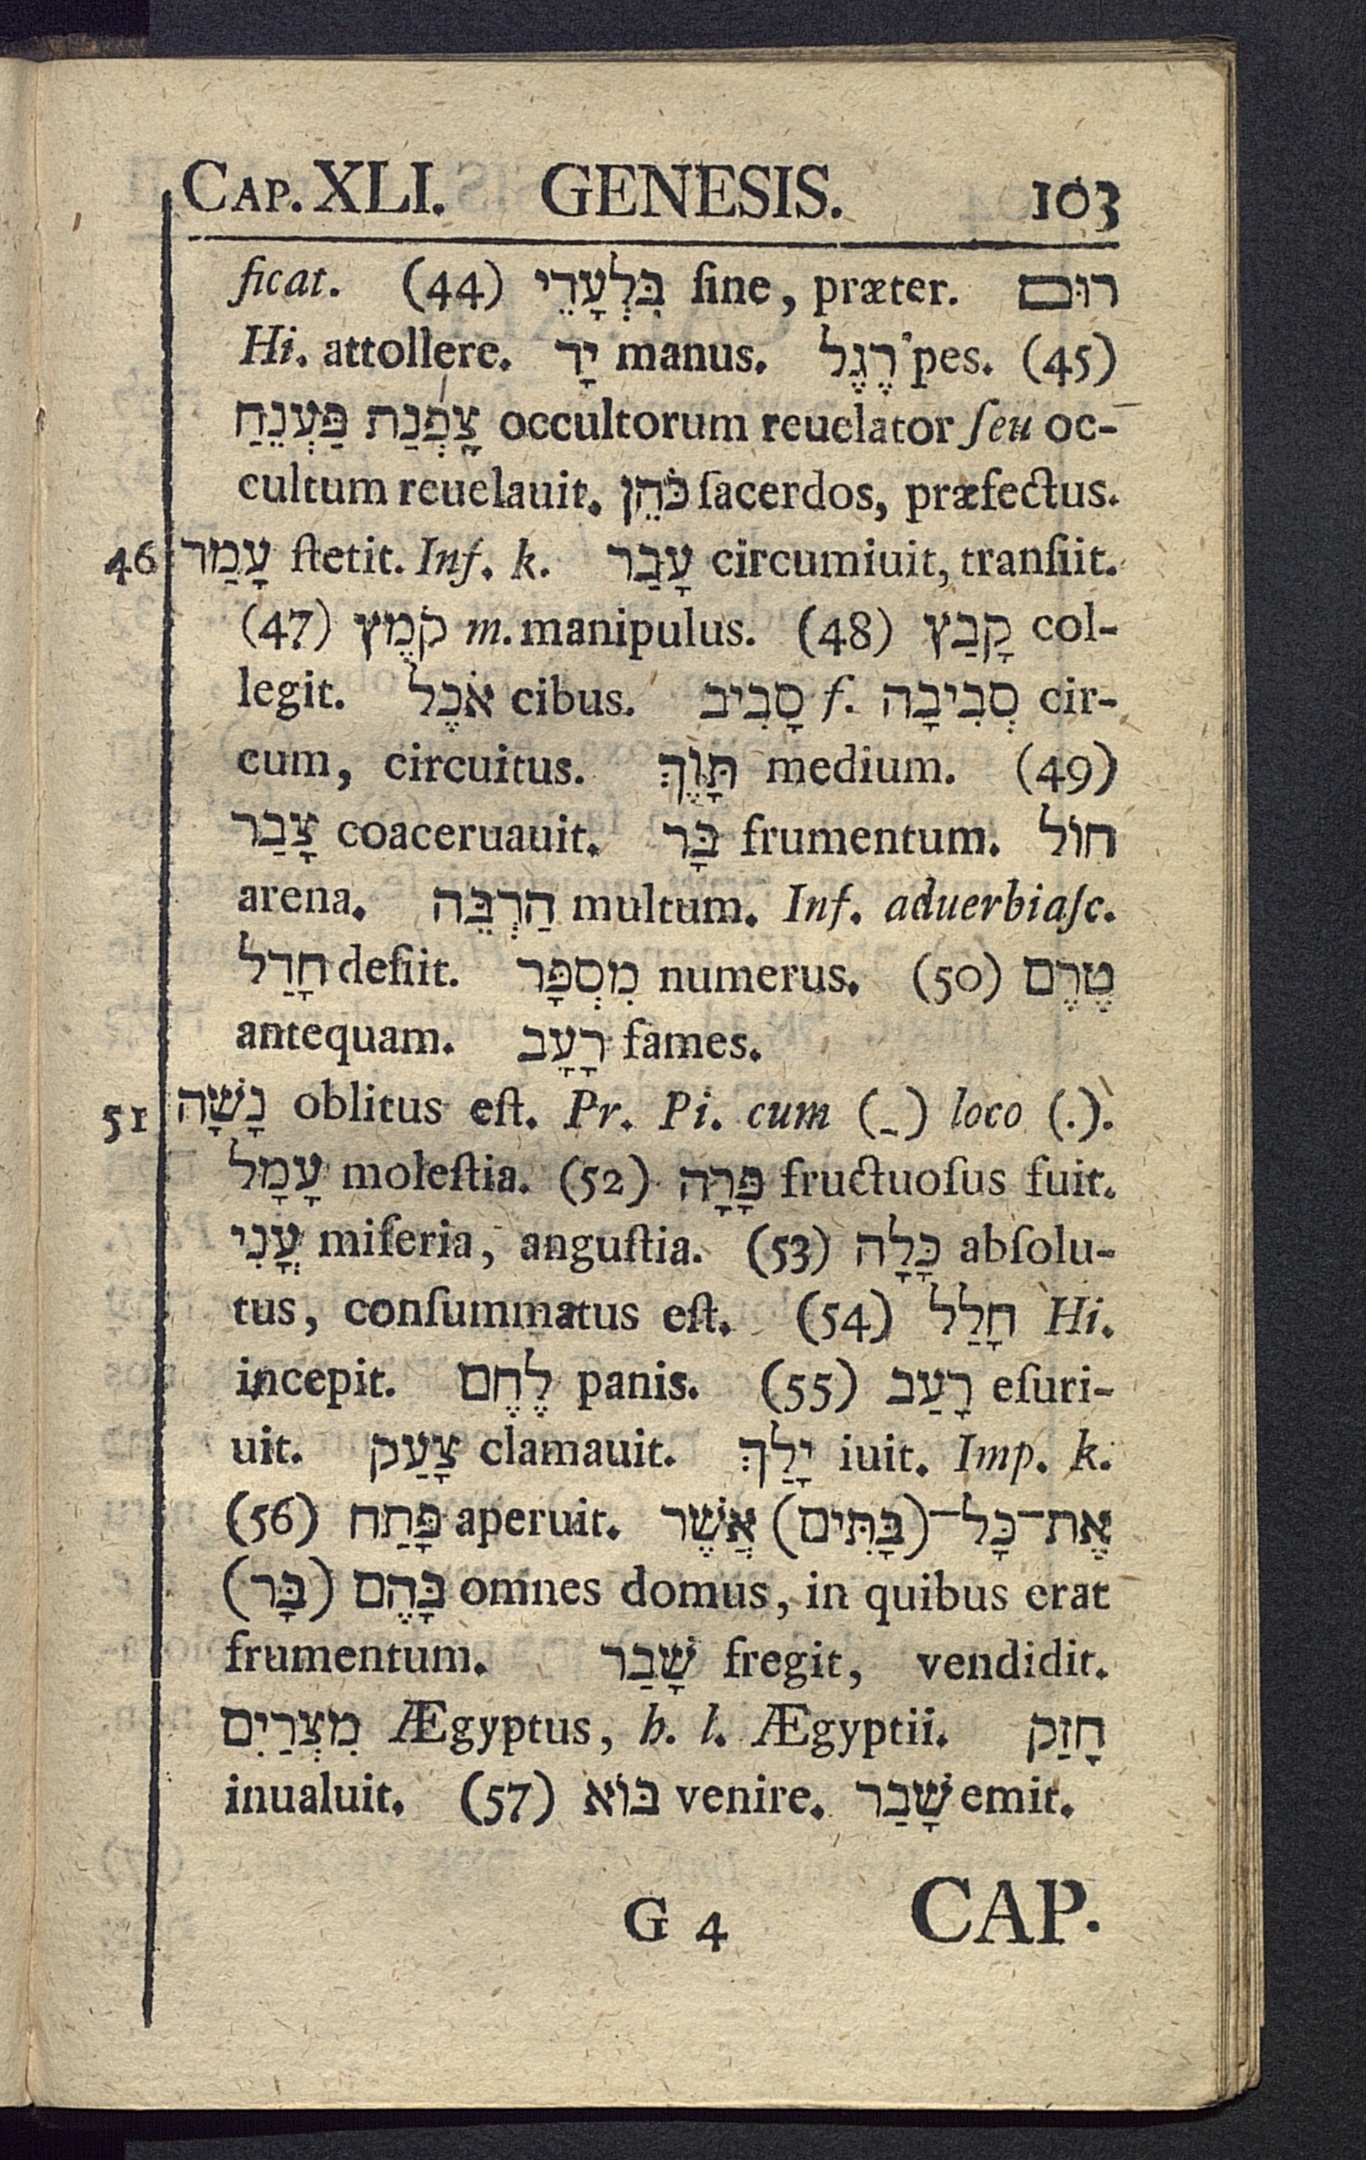 CAP. XLI. GENESIS. 103
ficat. (44) בִּלְעָדֵי ſine, præter. רוּם
Hi. attollere. יָד manus. רֶגֶל pes. (45)
צָפְנַת פַּעְנֵחַ occultorum reuelator ſeu oc-
cultum reuelauit. כֹּהֵן ſacerdos, præfectus.
46 עָמַד ſtetit. Inf. k. עָבַר circumiuit, tranſiit.
(47) קֹמֶץ m. manipulus. (48) קָבַץ col-
legit. אֹכֶל cibus. סָבִיב f. סְבִיבָה cir-
cum, circuitus. תָּוֶךְ medium. (49)
צָבַר coaceruauit. בָּר frumentum. חוֹל
arena. הַרְבֵּה multum. Inf. aduerbiaſc.
חָדַל deſiit. מִסְפָּר numerus. (50) טֶרֶם
antequam. רָעָב fames.
51 נָשָׁה oblitus eſt. Pr. Pi. cum (-) loco (.).
עָמָל moleſtia. (52) פָּרָה fructuoſus fuit.
עֳנִי miſeria, anguſtia. (53) כָּלָה abſolu-
tus, conſummatus eſt. (54) חָלַל Hi.
incepit. לֶחֶם panis. (55) רָעַב eſuri-
uit. צָעַק clamauit. יָלַךְ iuit. Imp. k.
(56) פָּתַח aperuit. אֶת־כָּל־(בָּתִּים) אֲשֶׁר
בָּהֶם (בָּר) omnes domus, in quibus erat
frumentum. שָׁבַר fregit, vendidit.
מִצְרַיִם Ægyptus, h. l. Ægyptii. חָזַק
inualuit. (57) בּוֹא venire. שָׁבַר emit.
G 4 CAP.